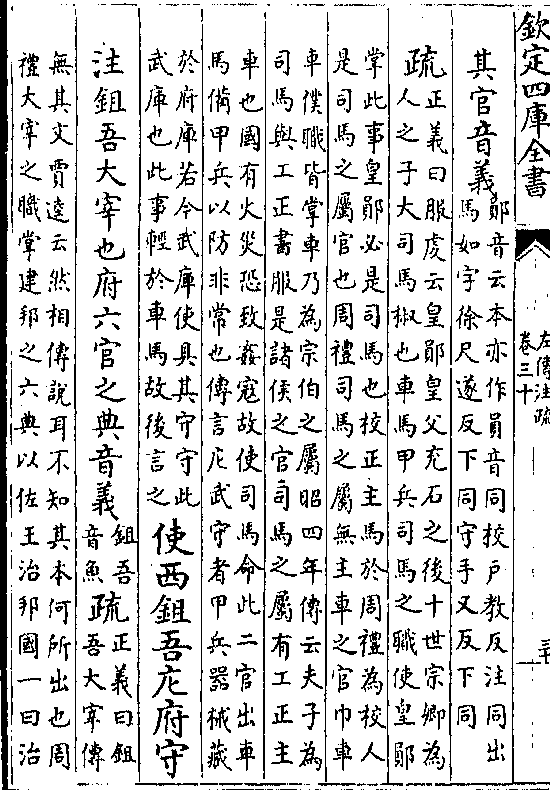 欽定四庫全書
左傳注疏
卷三十
三十
其官音義
鄖音云本亦作員音同校戸教反注同出
馬如字徐尺遂反下同守手又反下同
疏
正義曰服虔云皇鄖皇父充石之後十世宗卿為
人之子大司馬椒也車馬甲兵司馬之職使皇鄖
掌此事皇鄖必是司馬也校正主馬於周禮為校人
是司馬之屬官也周禮司馬之屬無主車之官巾車
車僕職皆掌車乃為宗伯之屬昭四年傳云夫子為
司馬與工正書服是諸侯之官司馬之屬有工正主
車也國有火災恐致姦寇故使司馬命此二官出車
馬備甲兵以防非常也傳言庀武守者甲兵器械藏
於府庫若今武庫使具其守守此
武庫也此事輕於車馬故後言之
使西鉏吾庀府守
注鉏吾大宰也府六官之典音義
鉏吾
音魚
疏
正義曰鉏
吾大宰傳
無其文賈逵云然相傳說耳不知其本何所出也周
禮大宰之職掌建邦之六典以佐王治邦國一曰治